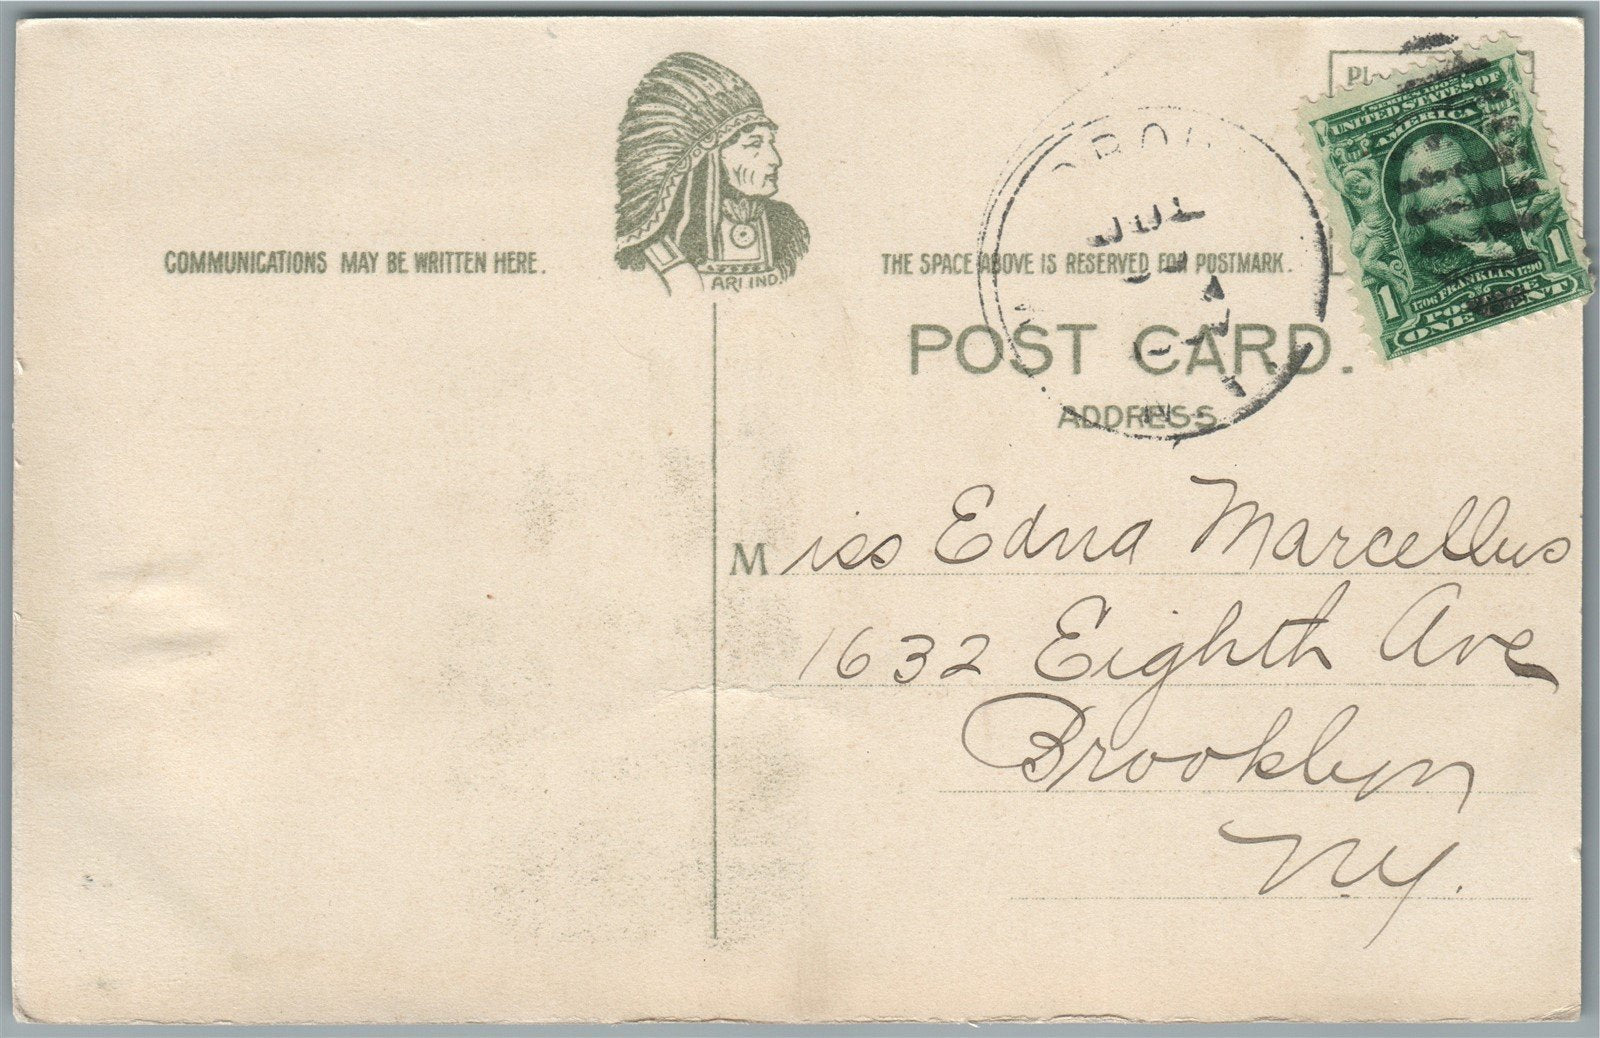 COMMUNICATIONS MAY BE WRITTEN HERE.
ARI IND.
THE SPACE ABOVE IS RESERVED FOR POSTMARK.
POST CARD.
ADDRESS
JUL
SERIES 1902
UNITED STATES OF
AMERICA
1706 FRANKLIN 1790
POSTAGE
1 ONE CENT 1
Miss Edna Marcellus
1632 Eighth Ave
Brooklyn
N.Y.